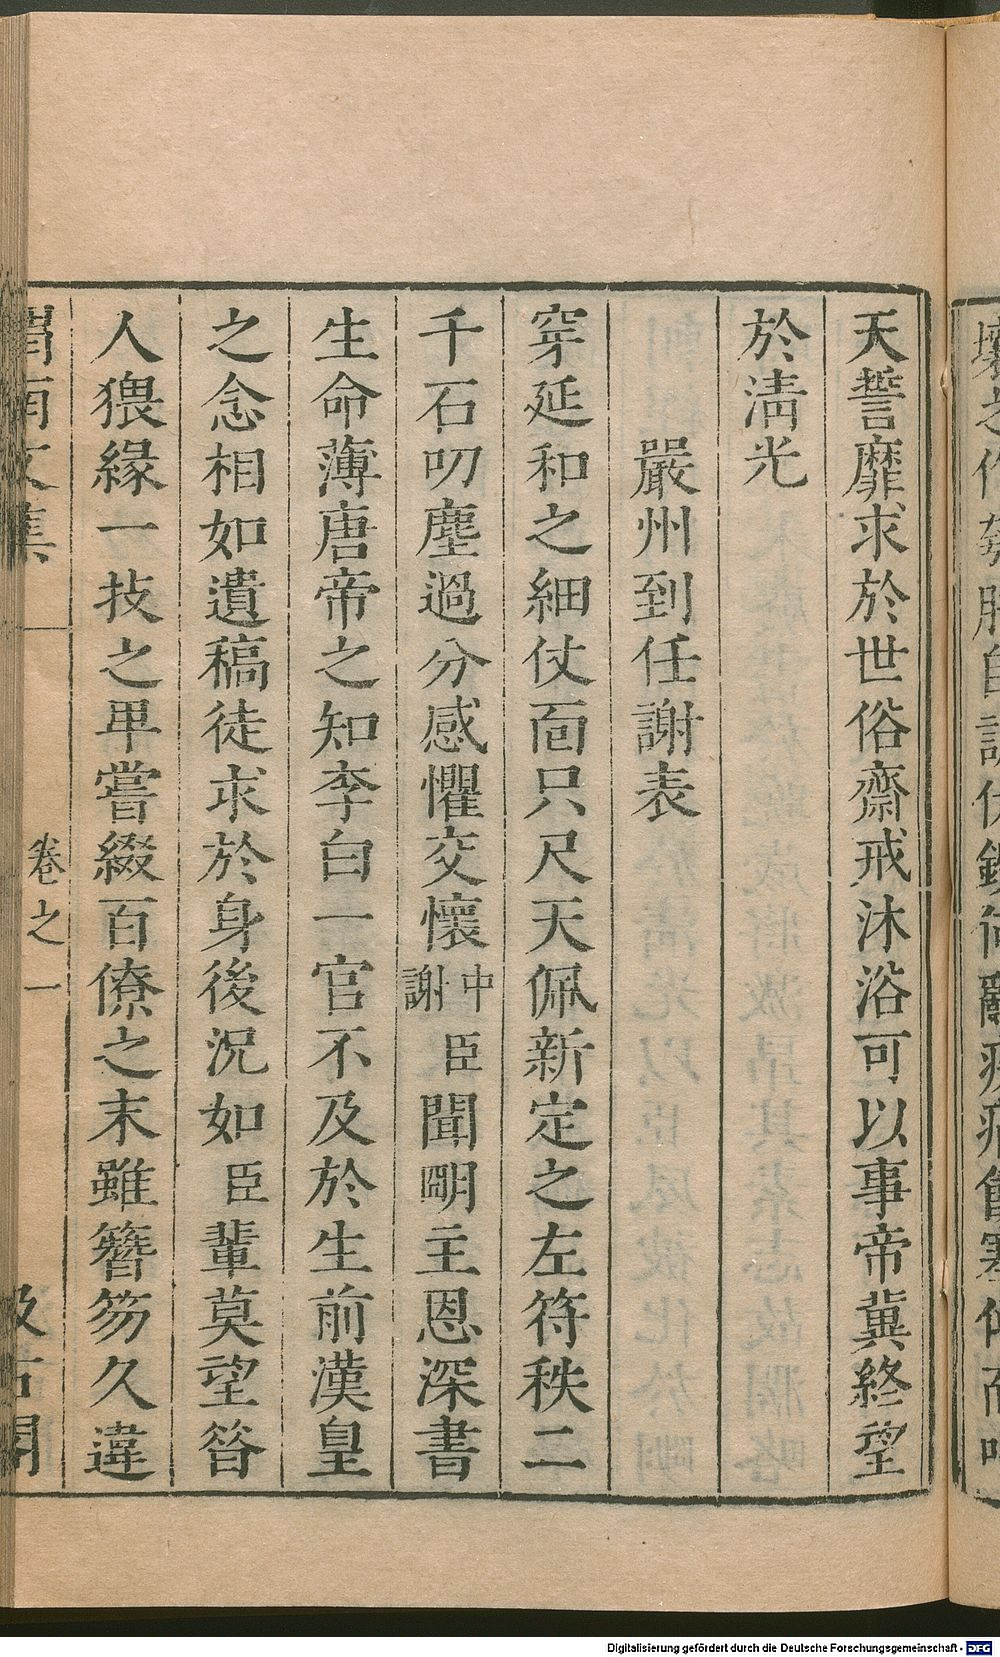 天誓靡求於世俗齋戒沐浴可以事帝兾終望
於淸光
嚴州到任謝表
穿延和之細仗面只尺天佩新定之左符秩二
千石叨塵過分感懼交懷中謝臣聞明主恩深書
生命薄唐帝之知李白一官不及於生前漢皇
之念相如遺稿徒求於身後況如臣輩莫望昝
人猥緣一技之卑嘗綴百僚之末雖簪笏久違
渭南文集
卷之一
汲古閣
Digitalisierung gefördert durch die Deutsche Forschungsgemeinschaft - DFG